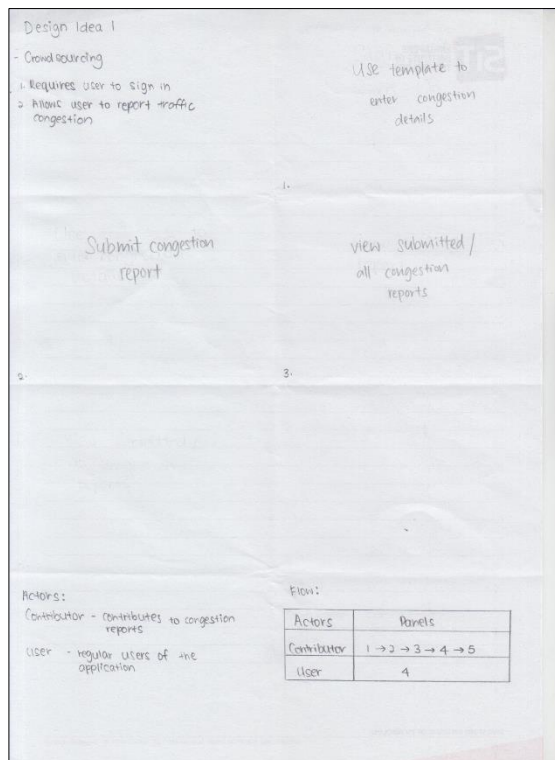 Design Idea 1
- Crowdsourcing
1. Requires user to sign in
2. Allows user to report traffic
congestion
Use template to
enter congestion
details
1.
Submit congestion
report
2.
view submitted/
all congestion
reports
3.
Actors:
Contributor - contributes to congestion
reports
User - regular users of the
application
Flow:
Actors Panels
Contributor 1 → 2 → 3 → 4 → 5
User 4